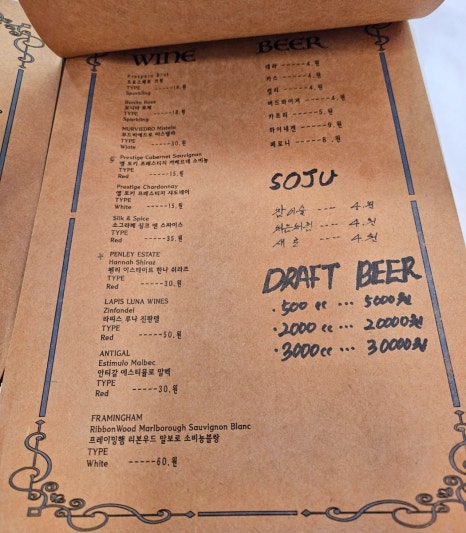 WINE
Prospero Brut
TYPE -----16.원
Sparkling
TYPE -----18.원
Sparkling
MURVIEDRO
TYPE
White -----30.원
Prestige Cabernet Sauvignon
옐 토키 프레스티지 까베르네 소비뇽
TYPE
Red -----15.원
Prestige Chardonnay
옐 토키 프레스티지 샤도네이
TYPE
White -----15.원
Silk & Spice
소그라페 실크 앤 스파이스
TYPE
Red -----35.원
PENLEY ESTATE
Hannah Shiraz
펜리 이스테이트 한나 쉬라즈
TYPE
Red -----30.원
LAPIS LUNA WINES
Zinfandel
라피스 루나 진판델
TYPE
Red -----50.원
ANTIGAL
Estimulo Malbec
안티갈 에스티뮬로 말벡
TYPE
Red -----30.원
FRAMINGHAM
RibbonWood Marlborough Sauvignon Blanc
프레이밍햄 리본우드 말보로 소비뇽블랑
TYPE
White -----60.원
BEER
테라 -----4.원
카스 -----4.원
켈리 -----4.원
버드와이저 -----4.원
카프리 -----5.원
하이네켄 -----9.원
페로니 -----8.원
SOJU
참이슬 --- 4.원
처음처럼 --- 4.원
새로 --- 4.원
DRAFT BEER
· 500 cc ... 5000원
· 2000 cc ... 20000원
· 3000cc ... 30000원